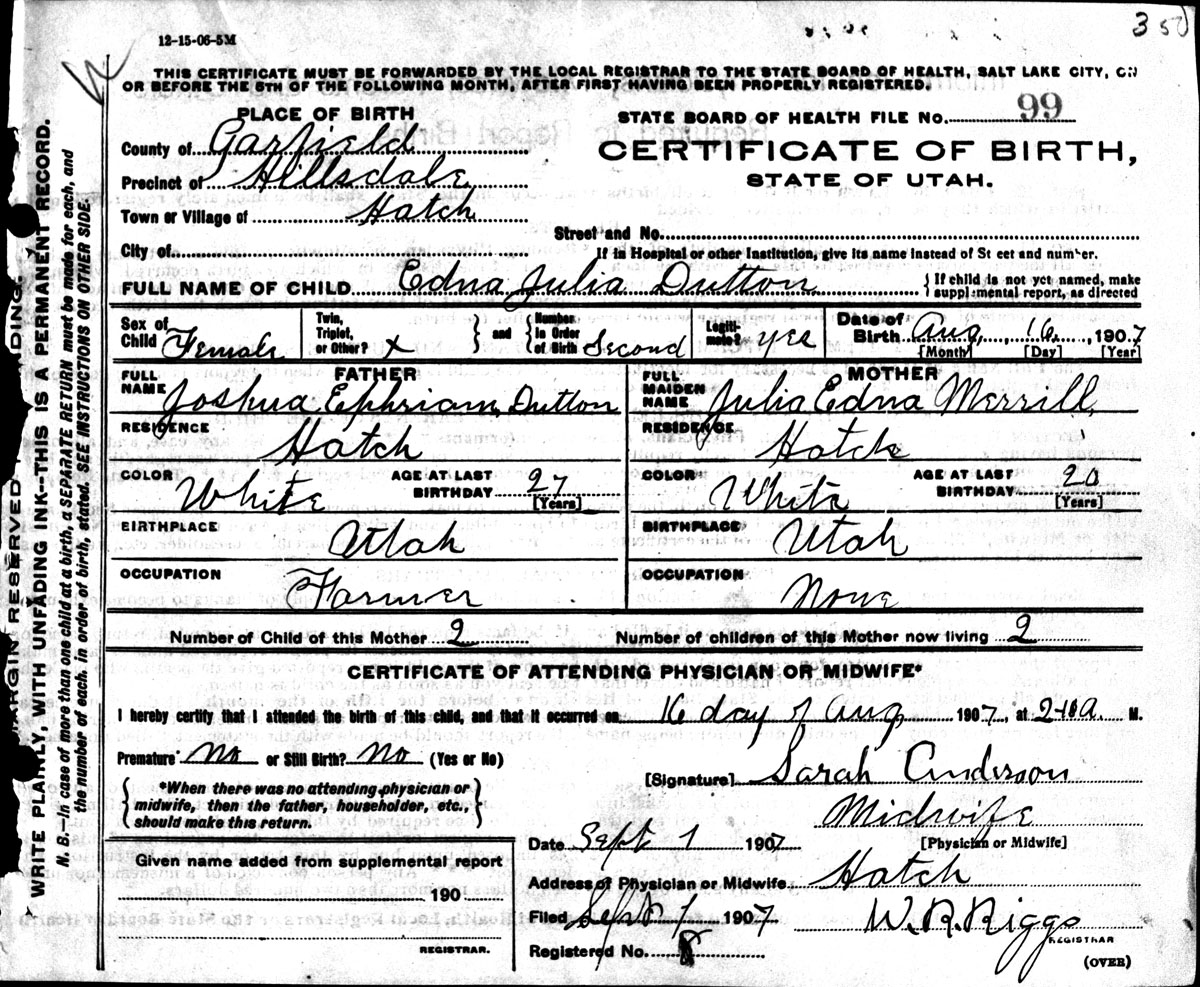 12-15-06-5M
350
THIS CERTIFICATE MUST BE FORWARDED BY THE LOCAL REGISTRAR TO THE STATE BOARD OF HEALTH, SALT LAKE CITY, ON
OR BEFORE THE 5TH OF THE FOLLOWING MONTH, AFTER FIRST HAVING BEEN PROPERLY REGISTERED.
PLACE OF BIRTH
STATE BOARD OF HEALTH FILE NO. 99
County of Garfield
CERTIFICATE OF BIRTH,
Precinct of Hillsdale
STATE OF UTAH.
Town or Village of Hatch
Street and No.
City of
If in Hospital or other Institution, give its name instead of St eet and number.
FULL NAME OF CHILD Edna Julia Dutton { If child is not yet named, make
supplemental report, as directed
Sex of Child Female Twin, Triplet, or Other? x } and { Number in Order of Birth Second Legitimate? yes Date of Birth Aug 16, 1907
[Month] [Day] [Year]
FATHER
MOTHER
FULL NAME Joshua Ephriam Dutton
FULL MAIDEN NAME Julia Edna Merrill
RESIDENCE Hatch
RESIDENCE Hatch
COLOR White AGE AT LAST BIRTHDAY 27 [Years]
COLOR White AGE AT LAST BIRTHDAY 20 [Years]
BIRTHPLACE Utah
BIRTHPLACE Utah
OCCUPATION Farmer
OCCUPATION None
Number of Child of this Mother 2 Number of children of this Mother now living 2
CERTIFICATE OF ATTENDING PHYSICIAN OR MIDWIFE*
I hereby certify that I attended the birth of this child, and that it occurred on 16 day of Aug 1907, at 2-10 a. M.
Premature No or Still Birth? No (Yes or No)
[Signature] Sarah Anderson
{ *When there was no attending physician or
midwife, then the father, householder, etc.,
should make this return. }
Midwife
[Physician or Midwife]
Date Sept 1 1907
Given name added from supplemental report
190
REGISTRAR.
Address of Physician or Midwife Hatch
Filed Sept 1 1907 W. R. Riggs
REGISTRAR
Registered No. 8
(OVER)
MARGIN RESERVED
WRITE PLAINLY, WITH UNFADING INK--THIS IS A PERMANENT RECORD.
N. B.--In case of more than one child at a birth, a SEPARATE RETURN must be made for each, and
the number of each, in order of birth, stated. SEE INSTRUCTIONS ON OTHER SIDE.